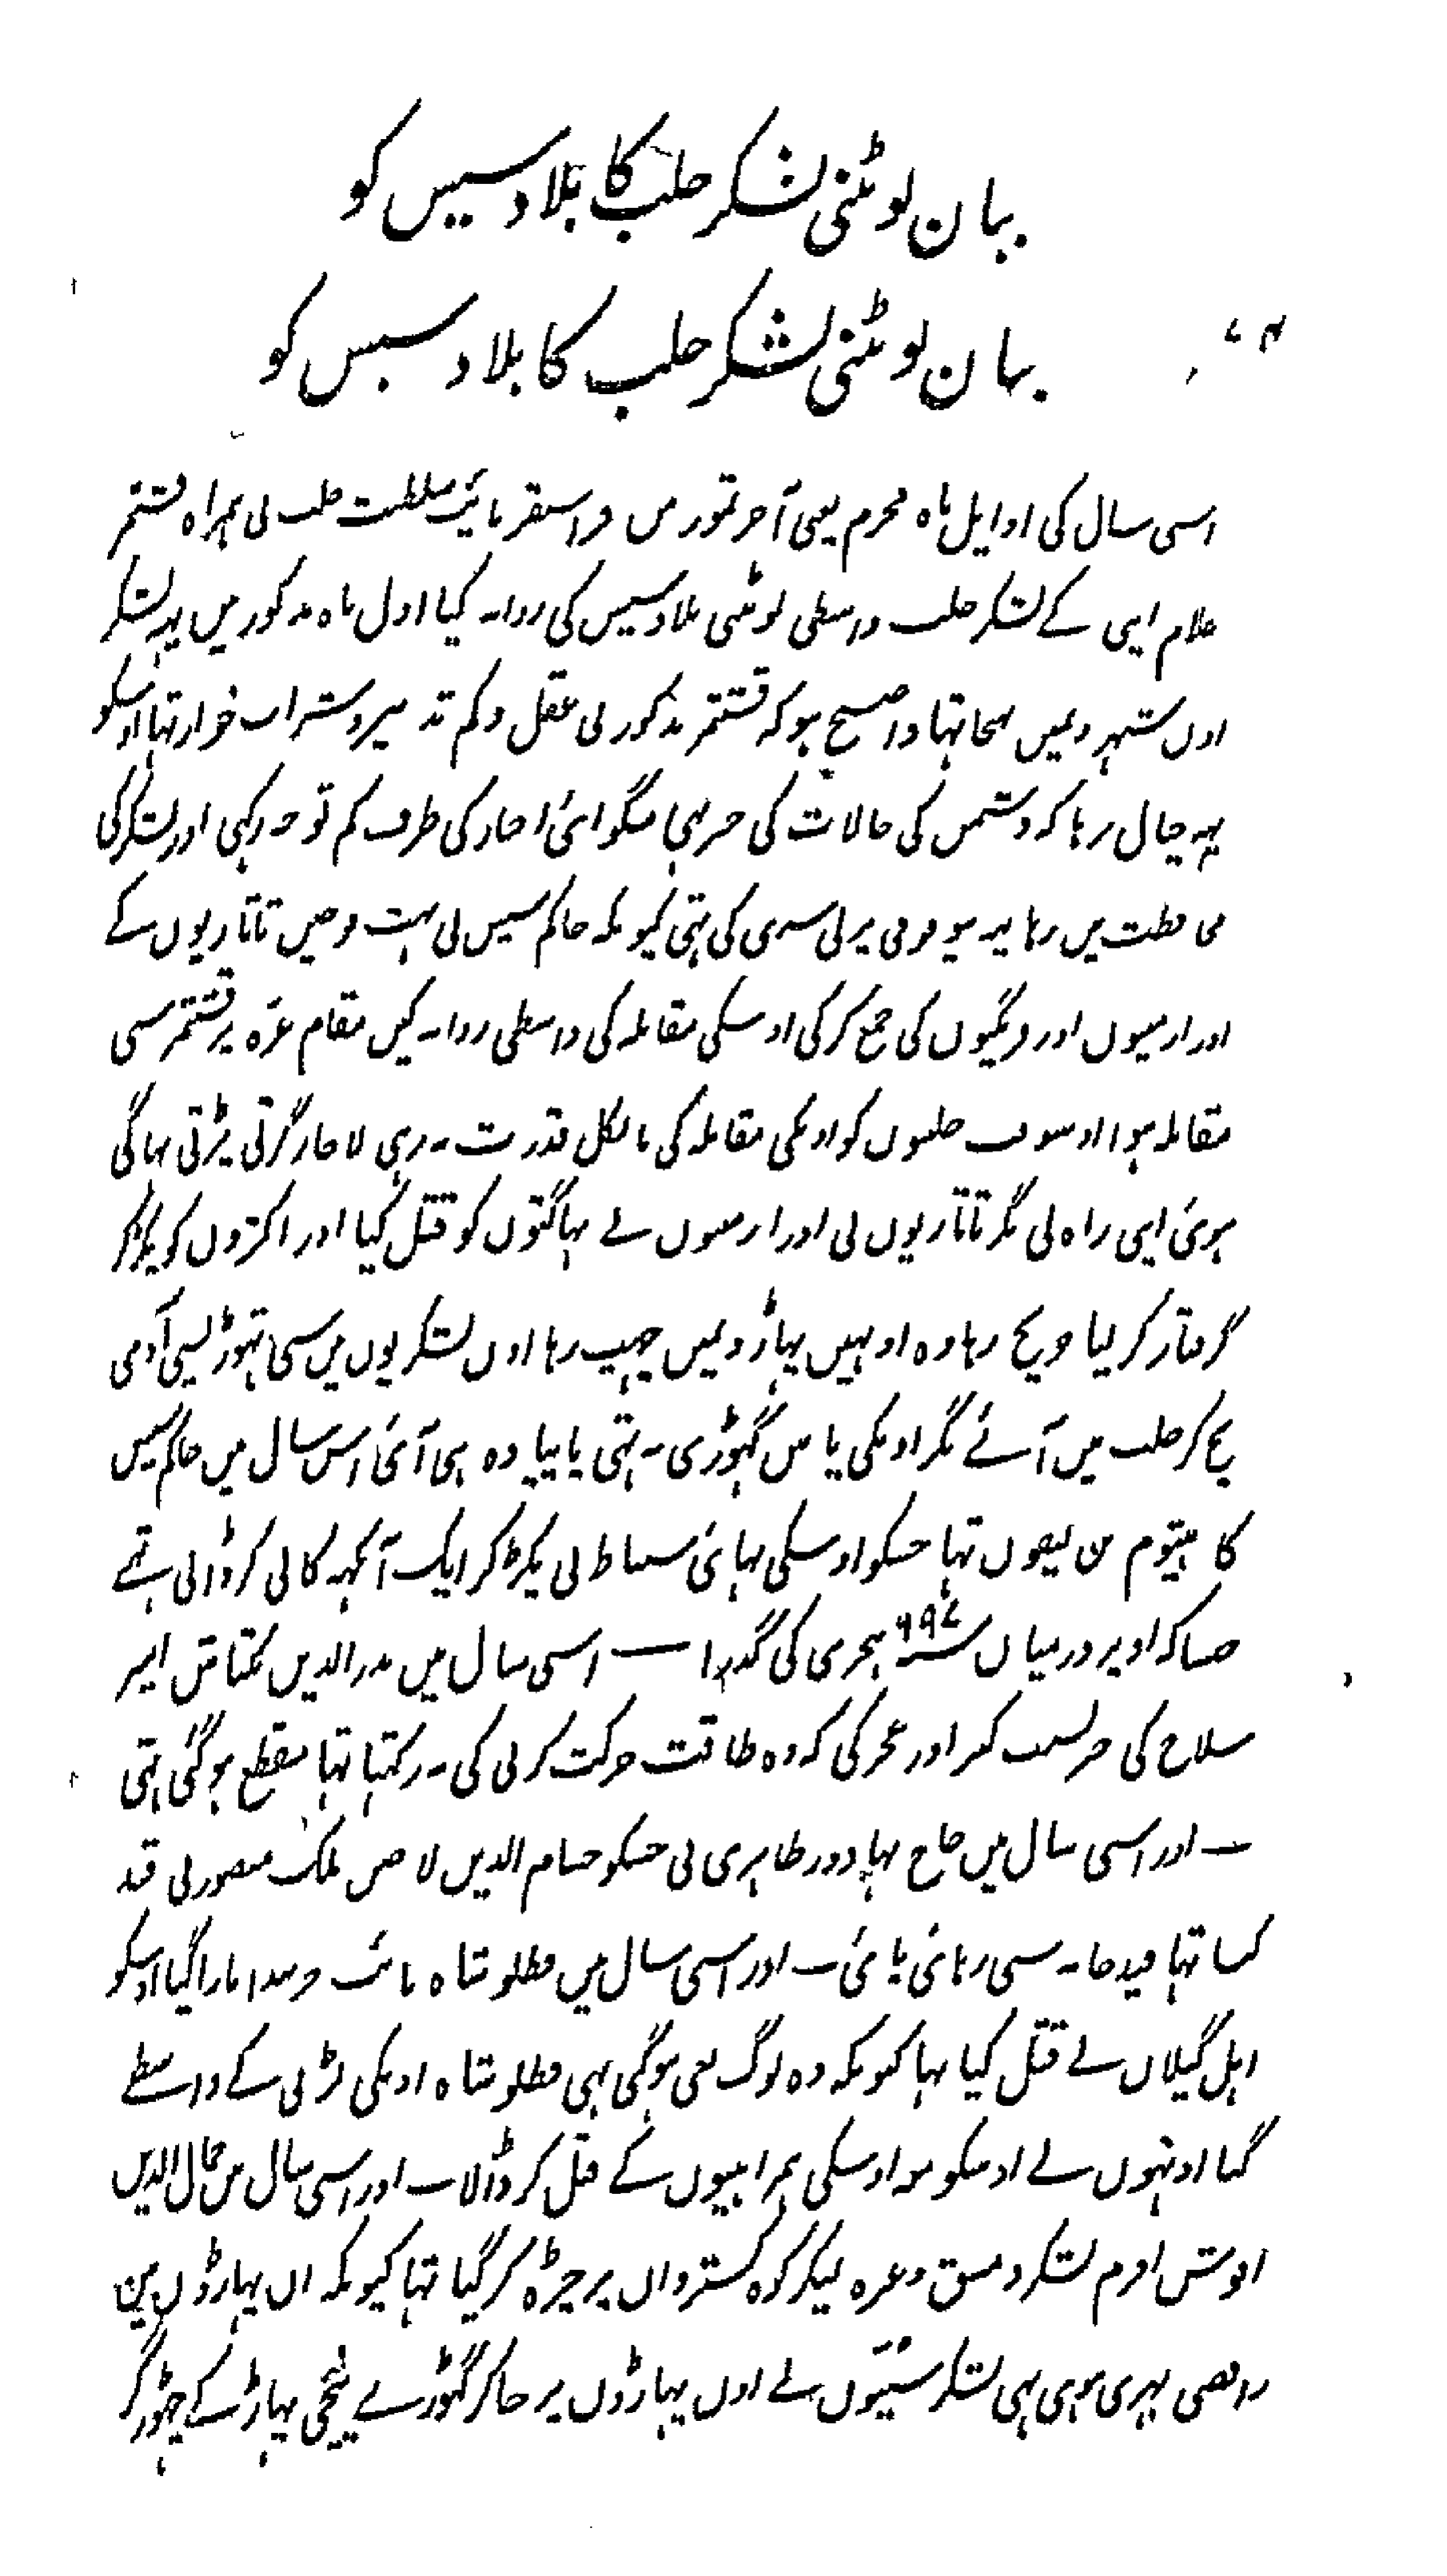 بیان لوٹنی لشکر حلب کا بلاد سیس کو
بیان لوٹنی لشکر حلب کا بلاد سیس کو
اسی سال کی اوایل ماہ محرم یعنی آخر تموز میں قراسنقر نائب سلطنت حلب نی ہمراہ قشتمر
غلام اپنی کے لشکر حلب واسطی لوٹنی بلاد سیس کی روانہ کیا اول ماہ مذکور میں یہہ لشکر
اون شہرونمیں پہنچا تہا واضح ہو کہ قشتمر مذکور بی عقل و کم تدبیر و شراب خوار تہا اوسکو
یہہ خیال رہا کہ دشمن کی حالات کی خبر منگوائی اخبار کی طرف کم توجہ رکہی اور لشکر کی
محافظت میں رہا یہہ بیوقوفی پرلی سری کی تہی کیونکہ حاکم سیس نی بہت فوجیں تاتاریوں کے
اور ارمنیوں اور فرنگیوں کی جمع کرکی اوسکی مقابلہ کی واسطی روانہ کیں مقام غزہ پر قشتمر سی
مقابلہ ہوا اوسوقت حلبیوں کو اونکی مقابلہ کی بالکل قدرت نہ رہی لاچار گرتی پڑتی بہاگی
ہوئی اپنی راہ لی مگر تاتاریوں نی اور ارمنیوں نے بہاگتوں کو قتل کیا اور اکثروں کو پکڑکر
گرفتار کر لیا جو بچ رہا وہ اونہیں پہاڑونمیں چہپ رہا اون لشکریوں میں سی تہوڑیسی آدمی
بچ کر حلب میں آئے مگر اونکی پاس گہوڑی نہ تہی پا پیادہ ہی آئی اس سال میں حاکم سیس
کا ہیتوم بن لیفون تہا جسکو اوسکی بہائی سنباط نی پکڑ کر ایک آنکہہ کانی کر ڈالی تہے
جیسا کہ اوپر درمیان سنہ ۶۹۷ ہجری کی گذرا — اسی سال میں بدرالدین بکتاش امیر
سلاح کی خبر بسبب کبر اور عجز کی کہ وہ طاقت حرکت کرنی کی نہ رکہتا تہا منقطع ہو گئی تہی
— اور اسی سال میں حاج بہادر ظاہری نی جسکو حسام الدین لاجین ملک منصور نی قید
کیا تہا قیدخانہ سی رہائی پائی — اور اسی سال میں قطلوشاہ نائب خربندا مارا گیا اوسکو
اہل گیلان نے قتل کیا تہا کیونکہ وہ لوگ باغی ہوگئی تہی قطلوشاہ اونکی لڑنی کے واسطے
گیا اونہوں نے اوسکو معہ اوسکی ہمراہیوں کے قتل کر ڈالا — اور اسی سال میں جمال الدین
اقوش افرم لشکر دمشق وغیرہ لیکر کوہ کسروان پر چڑہ کر گیا تہا کیونکہ ان پہاڑوں مین
رافضی بہری ہوی تہی لشکر سنیوں نے اون پہاڑوں پر جاکر گہوڑے نیچی پہاڑ کے چہوڑکر